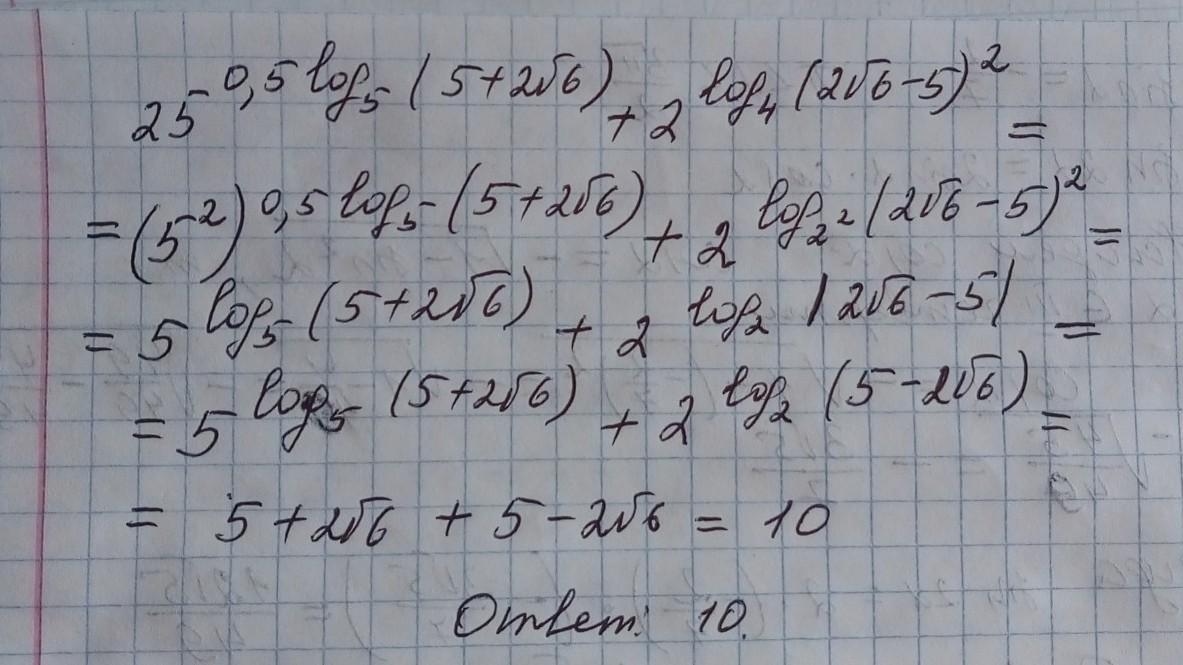 25^{0,5 log_5 (5+2√6)} + 2^{log_4 (2√6-5)^2} =
= (5^2)^{0,5 log_5 (5+2√6)} + 2^{log_{2^2} (2√6-5)^2} =
= 5^{log_5 (5+2√6)} + 2^{log_2 |2√6-5|} =
= 5^{log_5 (5+2√6)} + 2^{log_2 (5-2√6)} =
= 5+2√6 + 5-2√6 = 10
Ответ: 10.